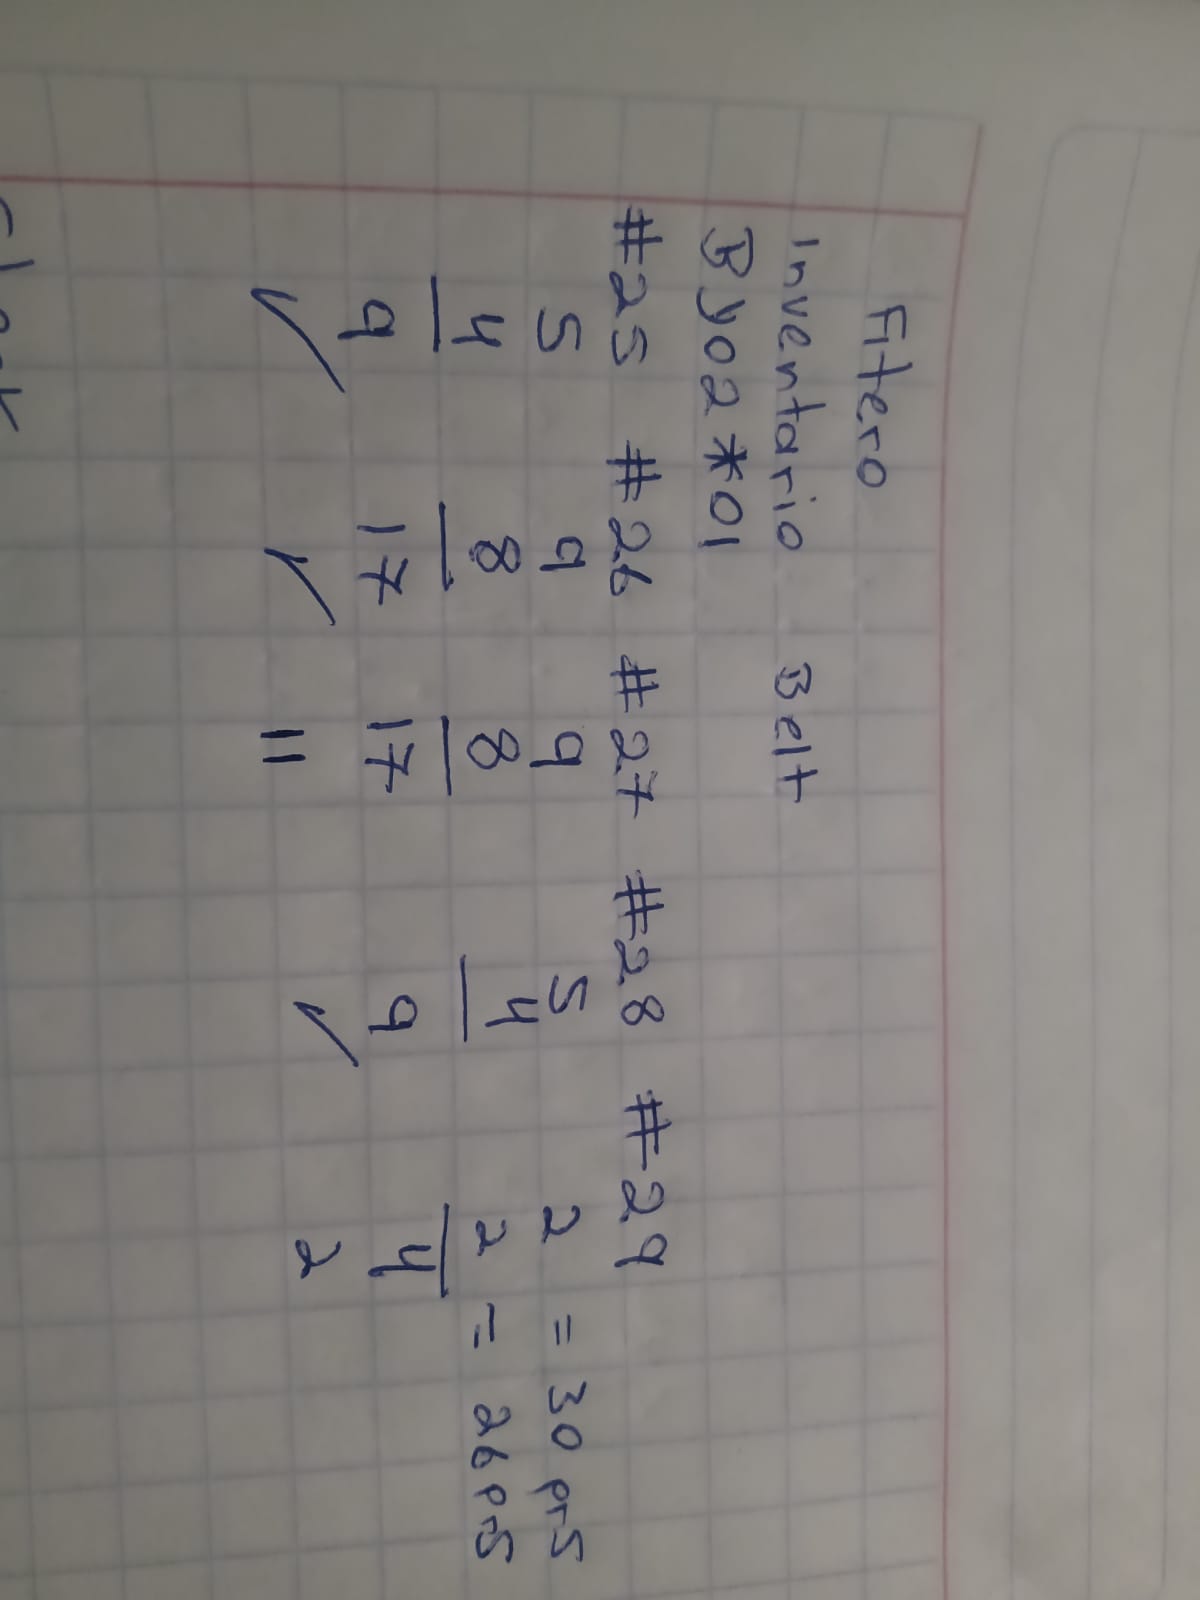 Fitero
Inventario Belt
Byo2*01
#25 #26 #27 #28 #29
5 9 9 5 2 = 30 prs
4 8 8 4 2 = 26 prs
9 17 17 9 4
✓ ✓ 11 ✓ 2